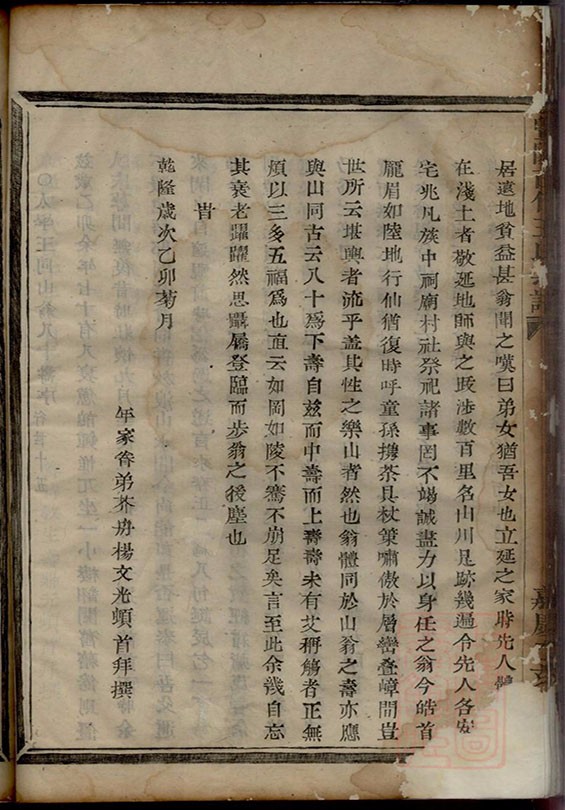 居遠地貧益甚翁聞之嘆曰弟女猶吾女也立延之家時先人
在淺土者敬延地師與之跋涉數百里名山川足跡幾遍令先人各安
宅兆凡族中祠廟村社祭祀諸事罔不竭誠盡力以身任之翁今皓首
龐眉如陸地行仙猶復時呼童孫攜茶具杖策嘯傲於層巒叠嶂間豈
世所云堪輿者流乎蓋其性之樂山者然也翁體同於山翁之壽亦應
與山同古云八十爲下壽自兹而中壽而上壽壽未有艾稱觴者正無
煩以三多五福爲也直云如岡如陵不騫不崩足矣言至此余幾自忘
其衰老躍躍然思躡屩登臨而步翁之後塵也
旹
乾隆歲次乙卯菊月
年家眷弟芥舟楊文光頓首拜撰